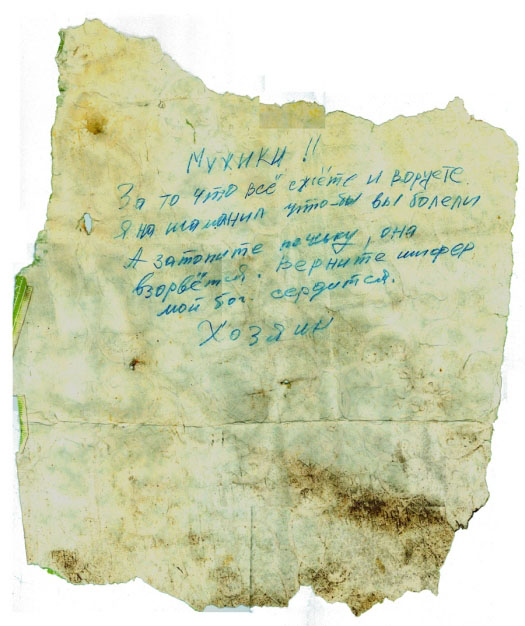 Мужики !!
За то что всё сжёте и воруете
Я нашаманил чтобы вы болели
А затопите печьку, она
взорвётся. Верните шифер
мой бог сердится.
Хозяин